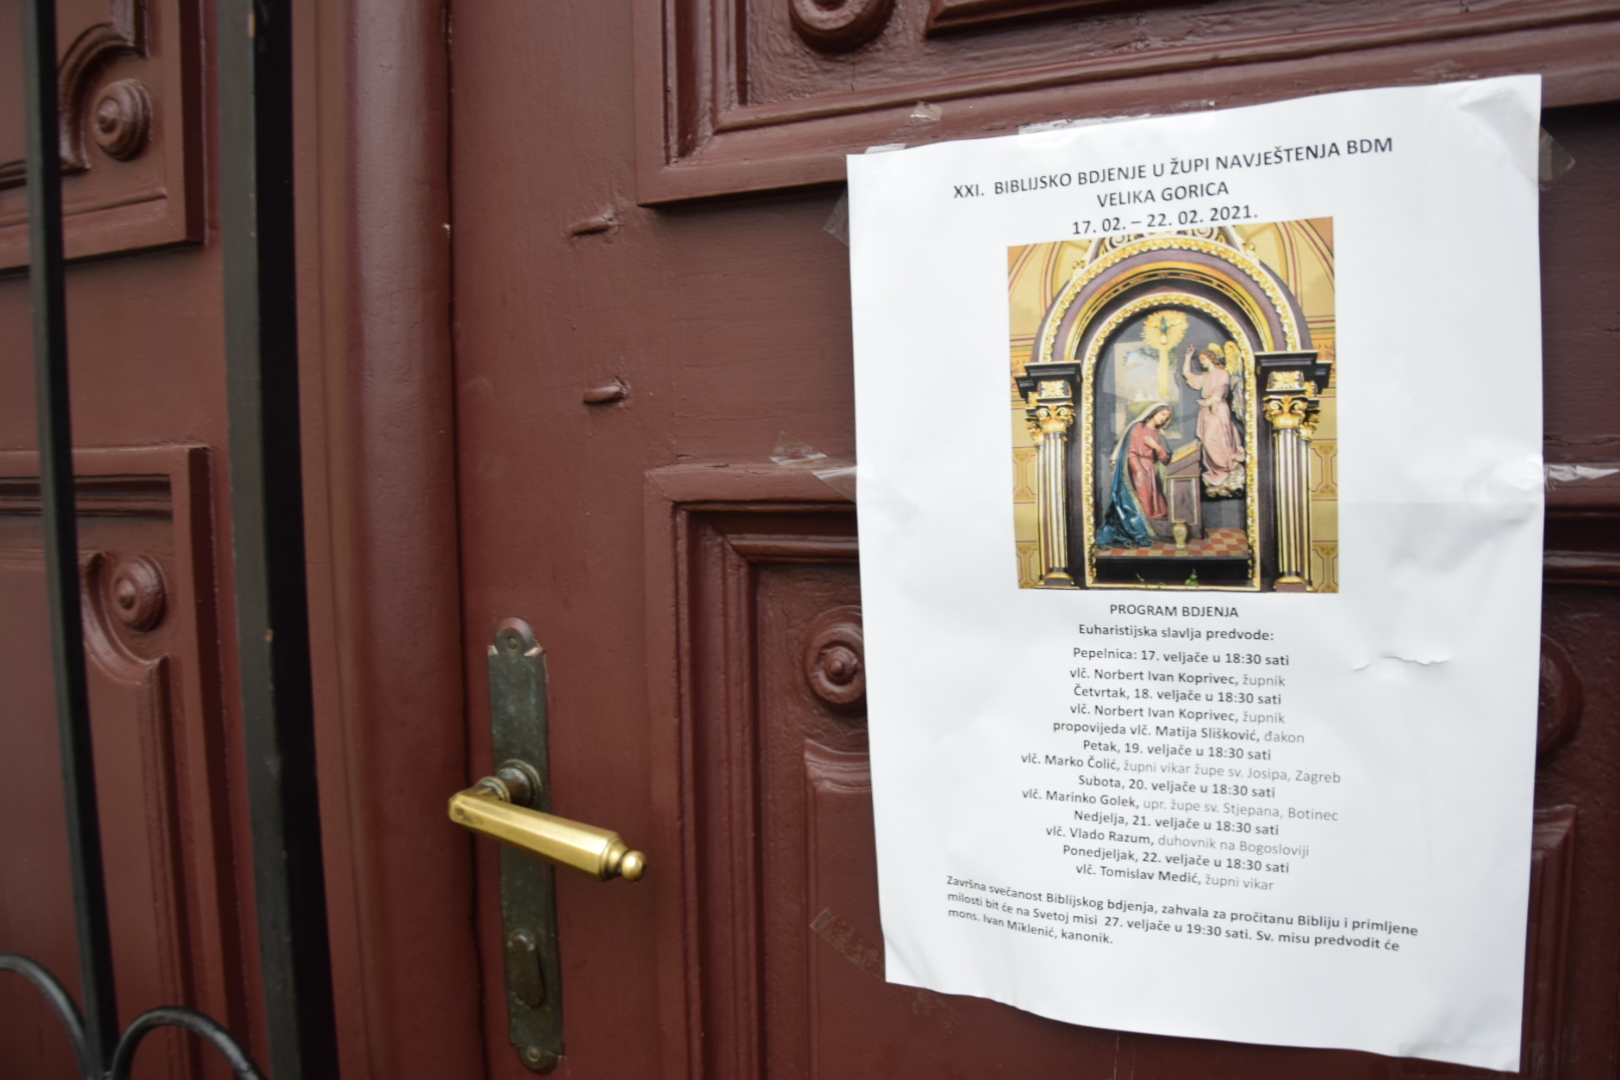 XXI. BIBLIJSKO BDJENJE U ŽUPI NAVJEŠTENJA BDM
VELIKA GORICA
17. 02. – 22. 02. 2021.
PROGRAM BDJENJA
Euharistijska slavlja predvode:
Pepelnica: 17. veljače u 18:30 sati
vlč. Norbert Ivan Koprivec, župnik
Četvrtak, 18. veljače u 18:30 sati
vlč. Norbert Ivan Koprivec, župnik
propovijeda vlč. Matija Slišković, đakon
Petak, 19. veljače u 18:30 sati
vlč. Marko Čolić, župni vikar župe sv. Josipa, Zagreb
Subota, 20. veljače u 18:30 sati
vlč. Marinko Golek, upr. župe sv. Stjepana, Botinec
Nedjelja, 21. veljače u 18:30 sati
vlč. Vlado Razum, duhovnik na Bogosloviji
Ponedjeljak, 22. veljače u 18:30 sati
vlč. Tomislav Medić, župni vikar
Završna svečanost Biblijskog bdjenja, zahvala za pročitanu Bibliju i primljene
milosti bit će na Svetoj misi 27. veljače u 19:30 sati. Sv. misu predvodit će
mons. Ivan Miklenić, kanonik.